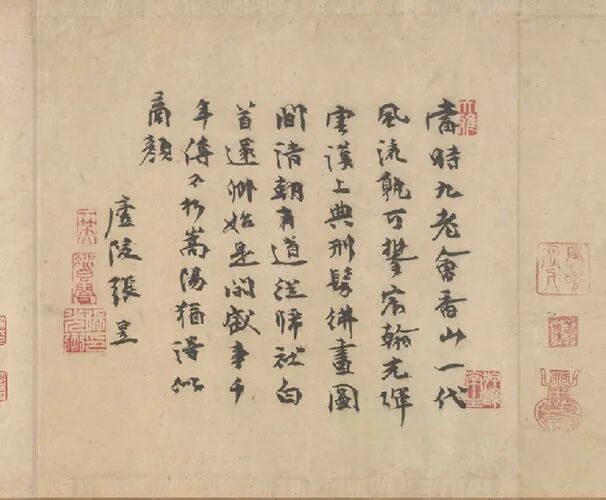 當時九老會香山一代
風流孰可攀宸翰光輝
雲漢上典刑髣彿畫圖
間清朝有道從歸社白
首還鄉始是閒盛事千
年傳不朽嵩陽猶得似
商顏
廬陵張昱